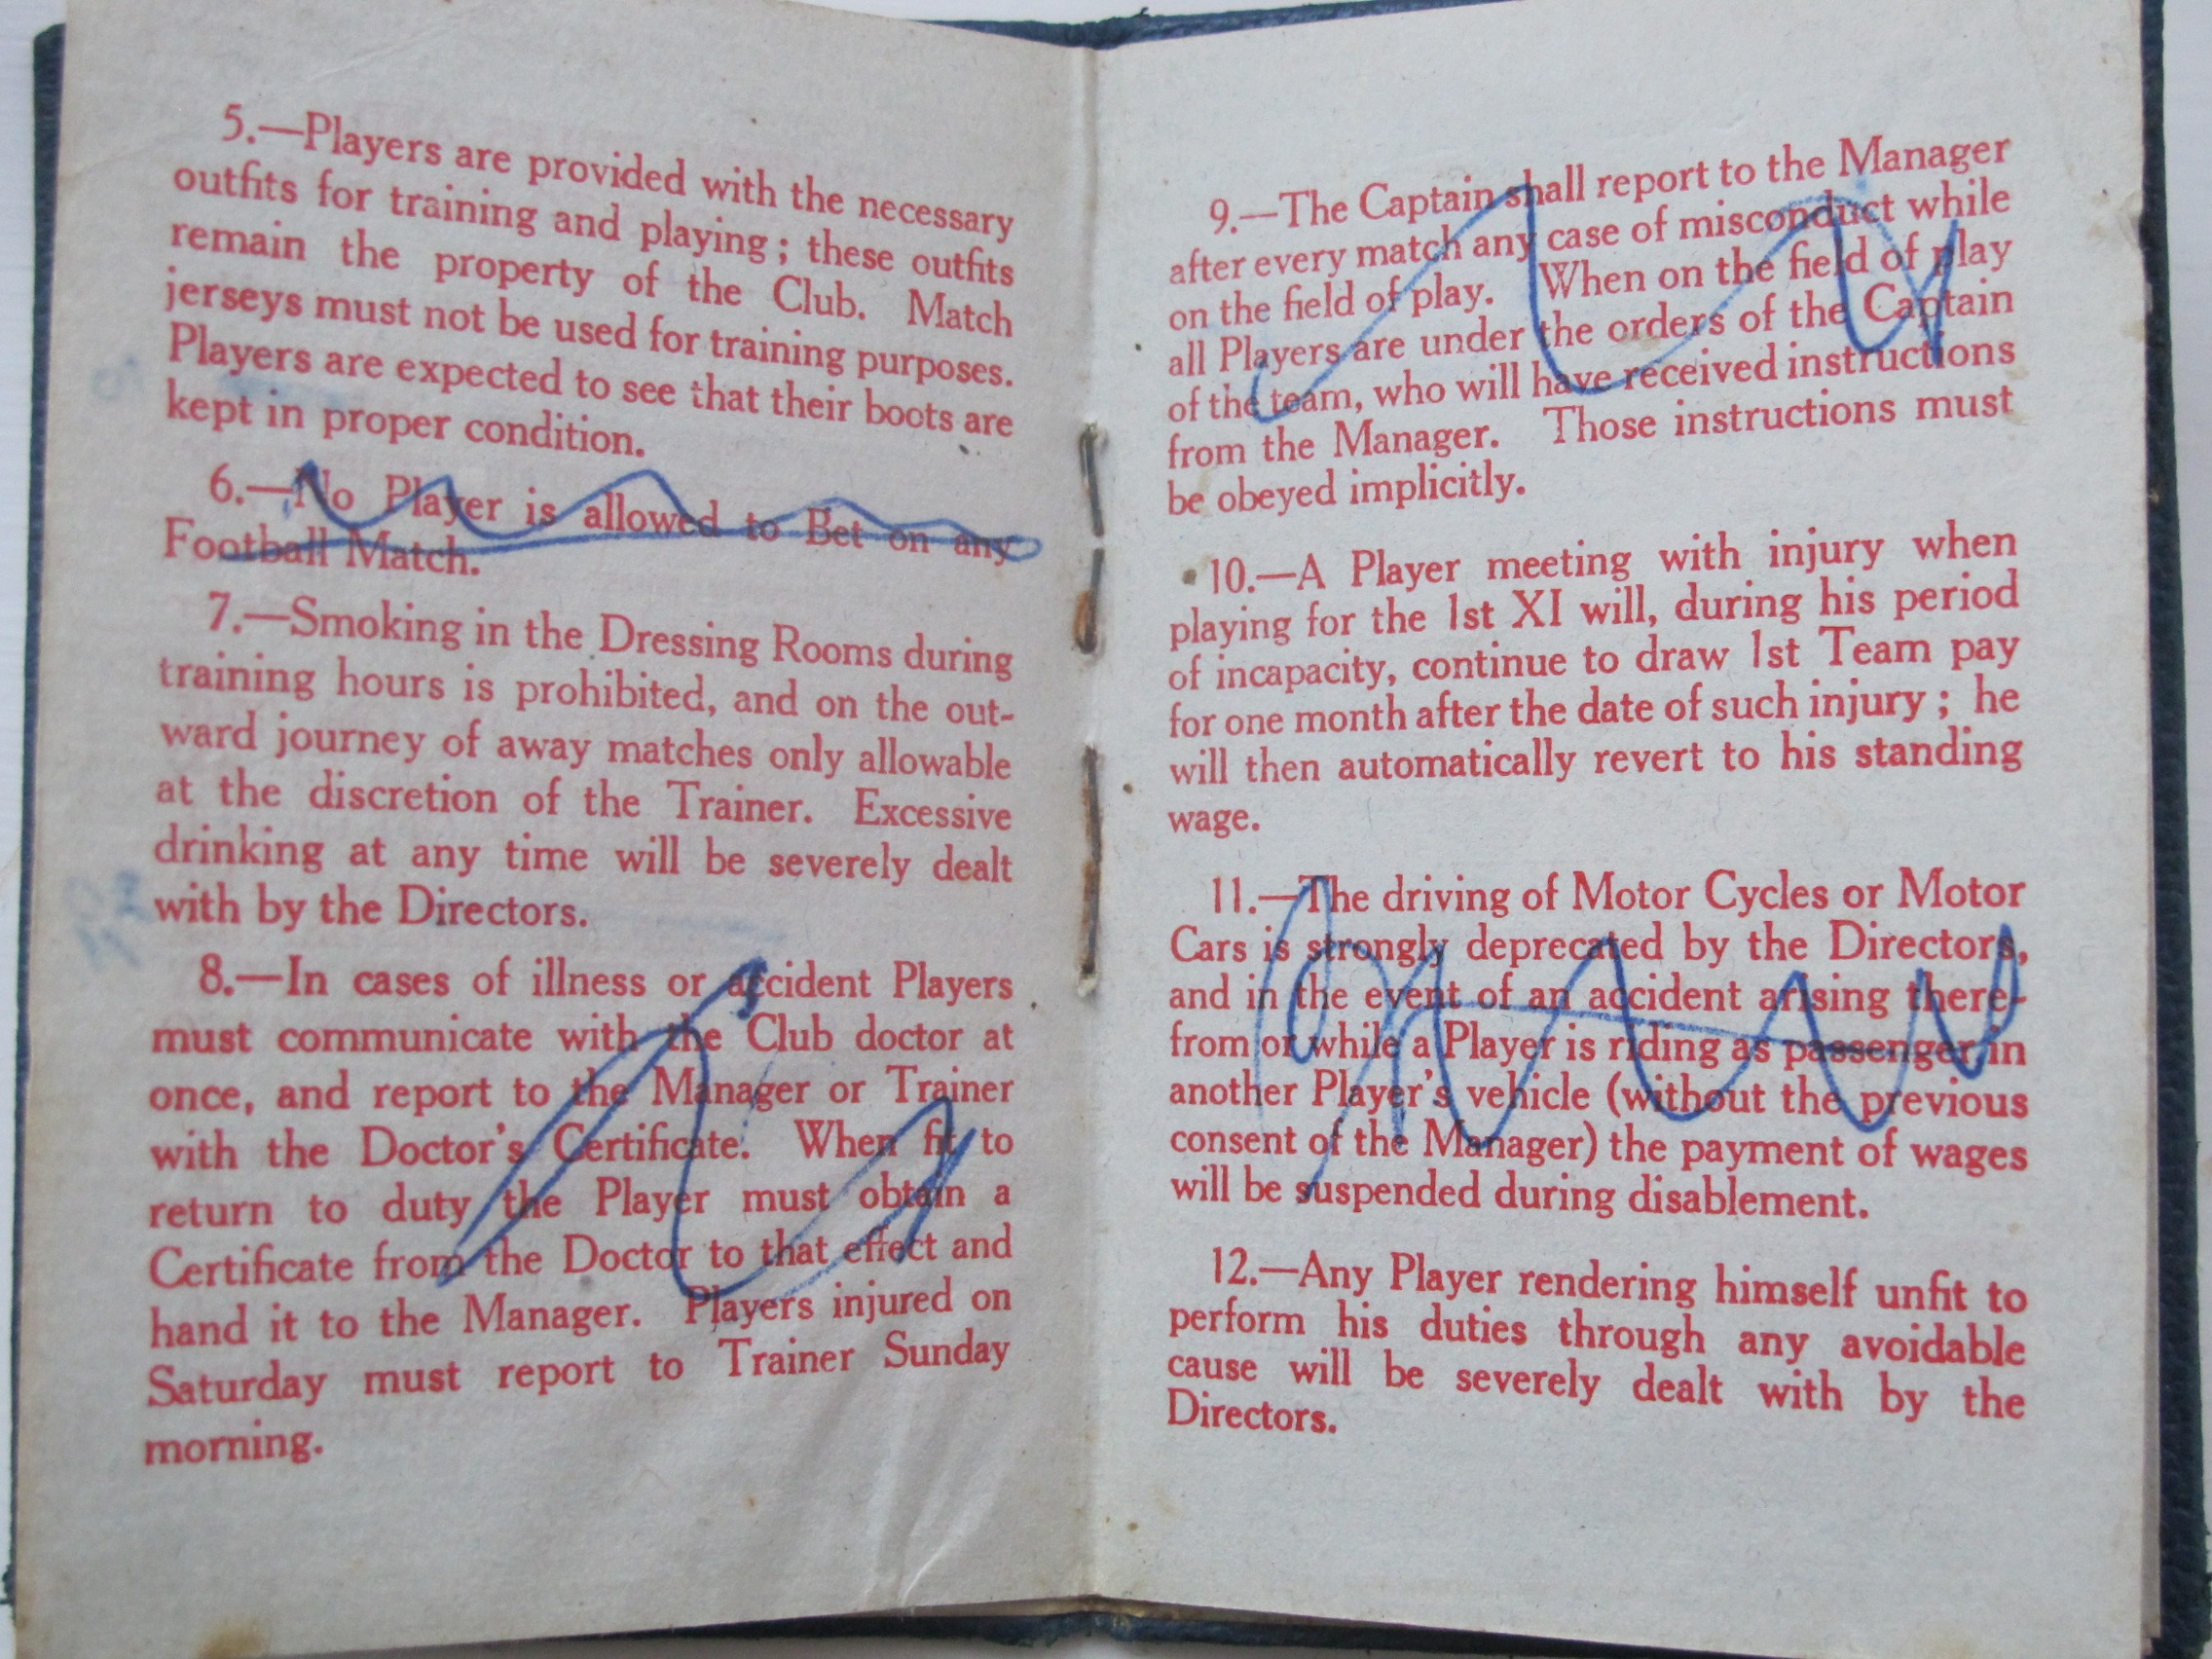 5.—Players are provided with the necessary
outfits for training and playing ; these outfits
remain the property of the Club. Match
jerseys must not be used for training purposes.
Players are expected to see that their boots are
kept in proper condition.
6.—No Player is allowed to Bet on any
Football Match.
7.—Smoking in the Dressing Rooms during
training hours is prohibited, and on the out-
ward journey of away matches only allowable
at the discretion of the Trainer. Excessive
drinking at any time will be severely dealt
with by the Directors.
8.—In cases of illness or accident Players
must communicate with the Club doctor at
once, and report to the Manager or Trainer
with the Doctor's Certificate. When fit to
return to duty the Player must obtain a
Certificate from the Doctor to that effect and
hand it to the Manager. Players injured on
Saturday must report to Trainer Sunday
morning.
9.—The Captain shall report to the Manager
after every match any case of misconduct while
on the field of play. When on the field of play
all Players are under the orders of the Captain
of the team, who will have received instructions
from the Manager. Those instructions must
be obeyed implicitly.
10.—A Player meeting with injury when
playing for the 1st XI will, during his period
of incapacity, continue to draw 1st Team pay
for one month after the date of such injury ; he
will then automatically revert to his standing
wage.
11.—The driving of Motor Cycles or Motor
Cars is strongly deprecated by the Directors,
and in the event of an accident arising there-
from or while a Player is riding as passenger in
another Player's vehicle (without the previous
consent of the Manager) the payment of wages
will be suspended during disablement.
12.—Any Player rendering himself unfit to
perform his duties through any avoidable
cause will be severely dealt with by the
Directors.